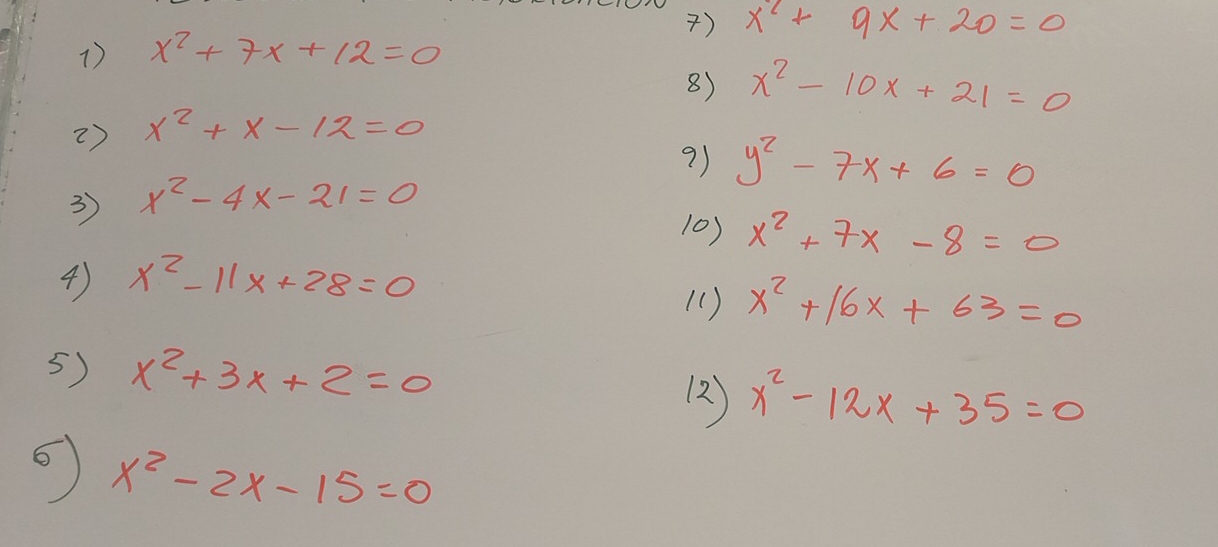 1) x² + 7x + 12 = 0
2) x² + x - 12 = 0
3) x² - 4x - 21 = 0
4) x² - 11x + 28 = 0
5) x² + 3x + 2 = 0
6) x² - 2x - 15 = 0
7) x² + 9x + 20 = 0
8) x² - 10x + 21 = 0
9) y² - 7x + 6 = 0
10) x² + 7x - 8 = 0
11) x² + 16x + 63 = 0
12) x² - 12x + 35 = 0